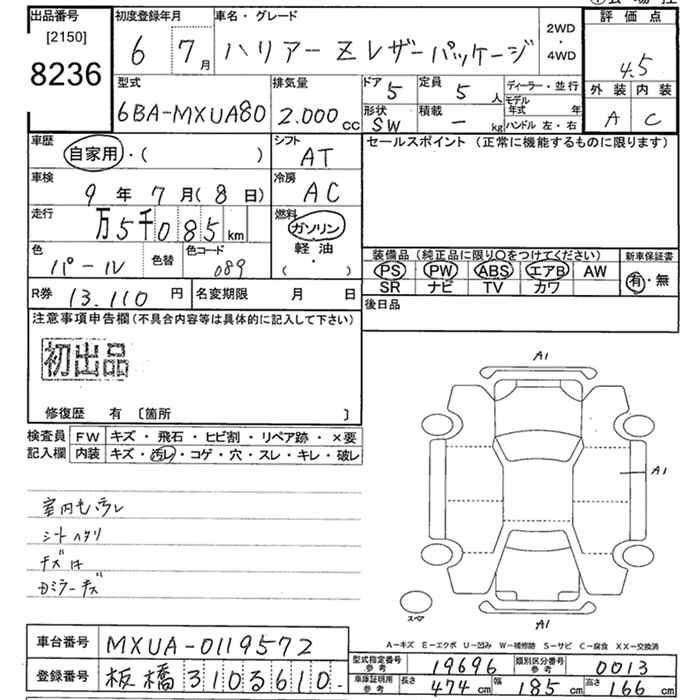 出品番号
[2150]
8236
初度登録年月
6 7月
車名・グレード
ハリアー Zレザーパッケージ
2WD
・
4WD
評価点
4.5
外装 内装
A C
型式
6BA-MXUA80
排気量
2.000cc
ドア 5
定員 5人
形状 SW
積載 - kg
ディーラー・並行
モデル年式 年
ハンドル 左・右
車歴
自家用・( )
シフト
AT
セールスポイント (正常に機能するものに限ります)
車検
9年7月(8日)
冷房
AC
走行
万5千085km
燃料
ガソリン
軽油
( ・ )
色
パール
色替
色コード
089
装備品 (純正品に限り○をつけてください)
新車保証書
PS PW ABS エアB AW
SR ナビ TV カワ
有・無
R券 13.110円
名変期限 月 日
後日品
注意事項申告欄(不具合内容等は具体的に記入して下さい)
初出品
修復歴 有 [箇所 ]
検査員
記入欄
FW キズ・飛石・ヒビ割・リペア跡・×要
内装 キズ・汚レ・コゲ・穴・スレ・キレ・破レ
キズ
Dミラーキズ
A1
A1
A1
スペア
A-キズ E-エクボ U-凹み W-補修跡 S-サビ C-腐食 XX-交換済
車台番号 MXUA-0119572
登録番号 板橋310る610.
型式指定番号
参考
19696
類別区分番号
参考
0013
車庫証明用
参考
長さ 474cm 幅 185cm 高さ 166cm